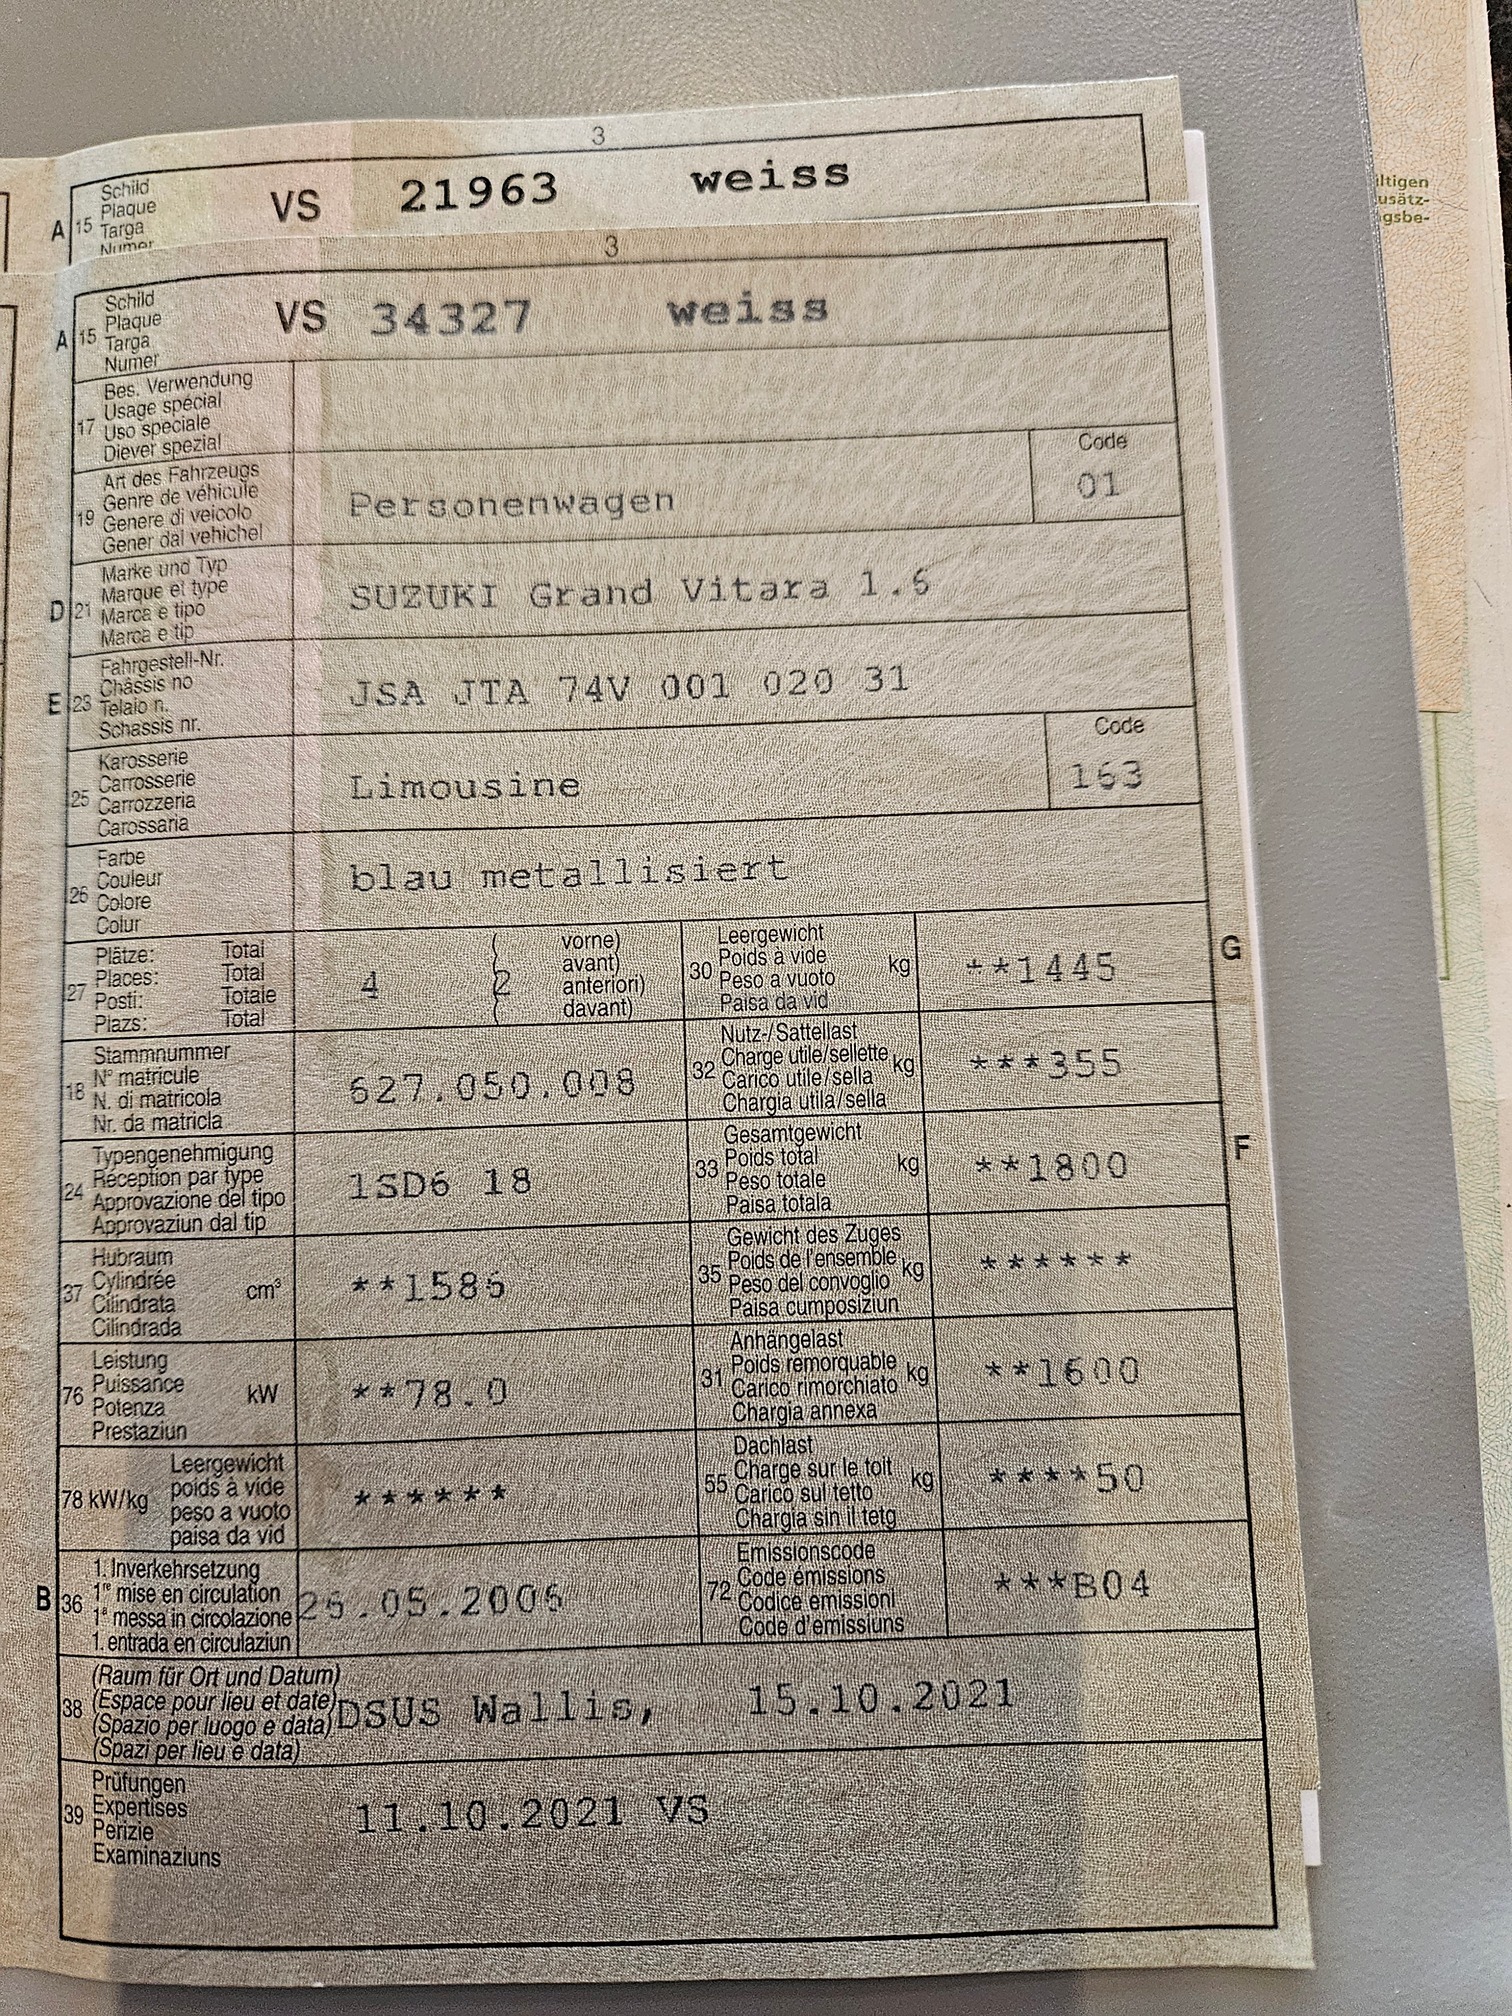 3
A 15 Schild
Plaque
Targa
Numer
VS 21963 weiss
3
A 15 Schild
Plaque
Targa
Numer
VS 34327 weiss
17 Bes. Verwendung
Usage spécial
Uso speciale
Diever spezial
19 Art des Fahrzeugs
Genre de véhicule
Genere di veicolo
Gener dal vehichel
Personenwagen
Code
01
D 21 Marke und Typ
Marque et type
Marca e tipo
Marca e tip
SUZUKI Grand Vitara 1.6
E 23 Fahrgestell-Nr.
Châssis no
Telaio n.
Schassis nr.
JSA JTA 74V 001 020 31
25 Karosserie
Carrosserie
Carrozzeria
Carossaria
Limousine
Code
163
26 Farbe
Couleur
Colore
Colur
blau metallisiert
27 Plätze: Total
Places: Total
Posti: Totale
Plazs: Total
4 ( 2 vorne)
avant)
anteriori)
davant)
30 Leergewicht
Poids à vide
Peso a vuoto
Paisa da vid
kg
**1445
G
18 Stammnummer
N° matricule
N. di matricola
Nr. da matricla
627.050.008
32 Nutz-/Sattellast
Charge utile/sellette
Carico utile/sella
Chargia utila/sella
kg
***355
24 Typengenehmigung
Réception par type
Approvazione del tipo
Approvaziun dal tip
1SD6 18
33 Gesamtgewicht
Poids total
Peso totale
Paisa totala
kg
**1800
F
37 Hubraum
Cylindrée
Cilindrata
Cilindrada
cm³
**1586
35 Gewicht des Zuges
Poids de l'ensemble
Peso del convoglio
Paisa cumposiziun
kg
******
76 Leistung
Puissance
Potenza
Prestaziun
kW
**78.0
31 Anhängelast
Poids remorquable
Carico rimorchiato
Chargia annexa
kg
**1600
78 kW/kg
Leergewicht
poids à vide
peso a vuoto
paisa da vid
******
55 Dachlast
Charge sur le toit
Carico sul tetto
Chargia sin il tetg
kg
****50
B 36 1. Inverkehrsetzung
1re mise en circulation
1a messa in circolazione
1. entrada en circulaziun
26.05.2006
72 Emissionscode
Code émissions
Codice emissioni
Code d'emissiuns
***B04
38 (Raum für Ort und Datum)
(Espace pour lieu et date)
(Spazio per luogo e data)
(Spazi per lieu e data)
DSUS Wallis, 15.10.2021
39 Prüfungen
Expertises
Perizie
Examinaziuns
11.10.2021 VS
ltigen
usätz-
gsbe-